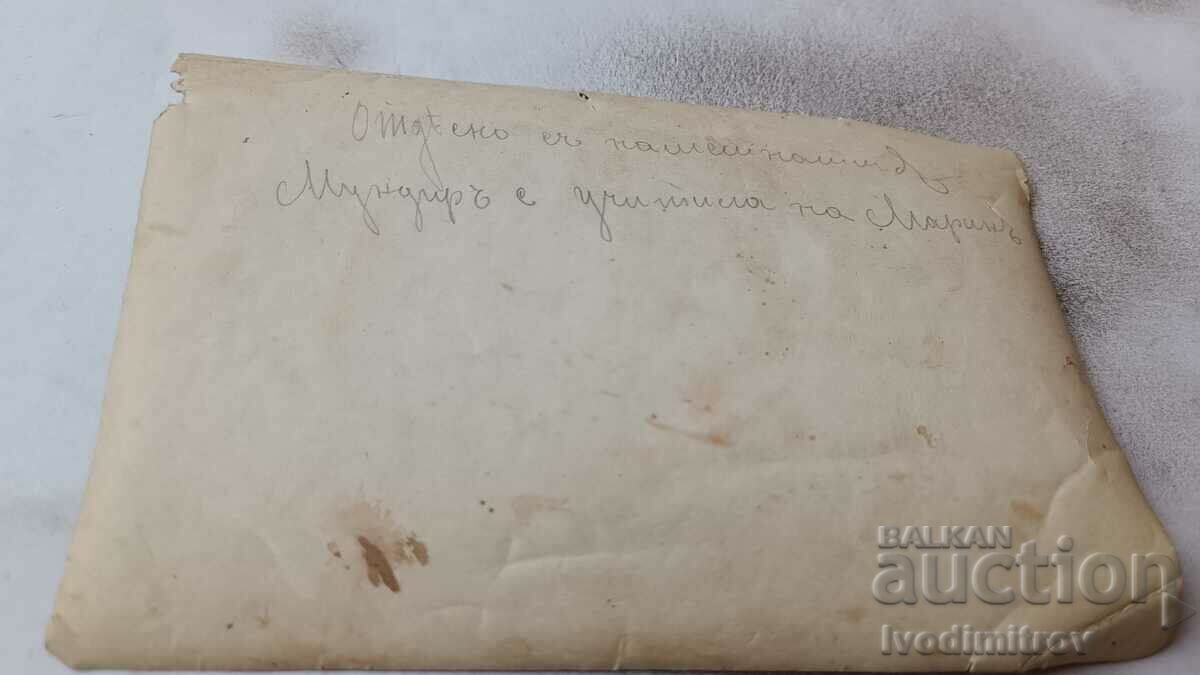 Отдѣсно съ
Мундиръ е учитила на Маринъ
BALKAN
auction
Ivodimitrov